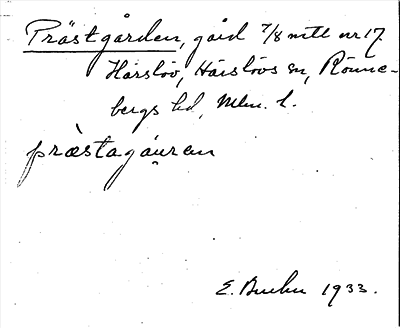 Prästgården, gård 7/8 mtl nr 17.
Härslöv, Härslövs sn, Rönne-
bergs hd, Mlm. l.
præstagáu̯ren
E. 1933.